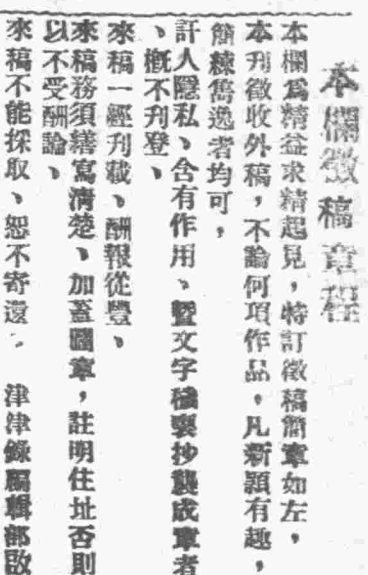 本欄徵稿章程
本欄爲精益求精起見，特訂徵稿簡章如左，
本刊徵收外稿，不論何項作品，凡新穎有趣，
簡練雋逸者均可，
訐人隱私、含有作用、暨文字穢褻抄襲成章者
、槪不刊登、
來稿一經刊載、酬報從豐、
來稿務須繕寫清楚、加蓋圖章，註明住址否則
以不受酬論、
來稿不能採取、恕不寄還、　津津錄編輯部啟